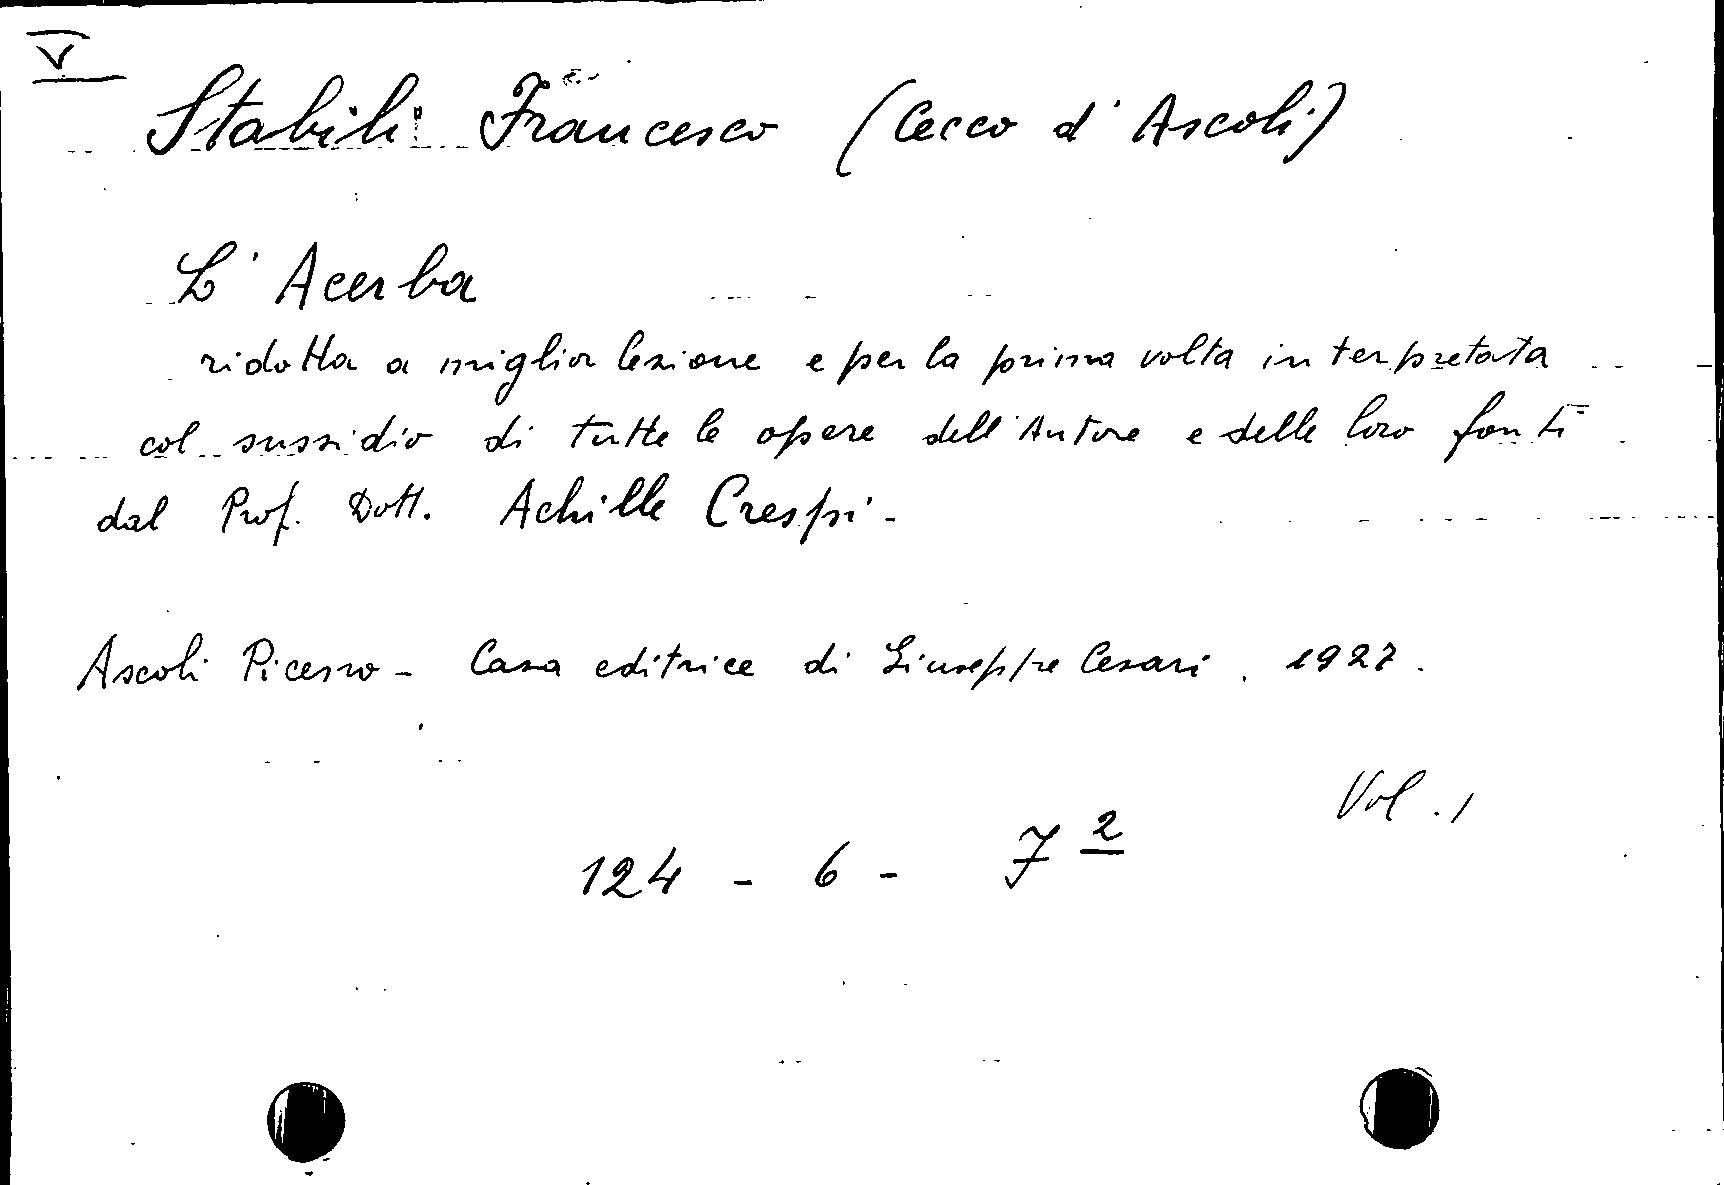 V
Stabili Francesco (Cecco d'Ascoli)
L'Acerba
ridotta a miglior lezione e per la prima volta interpretata
col sussidio di tutte le opere dell'Autore e delle loro fonti
dal Prof. Dott. Achille Crespi -
Ascoli Piceno - Casa editrice di Giuseppe Cesari. 1927.
Vol. 1
124 - 6 - 7 2